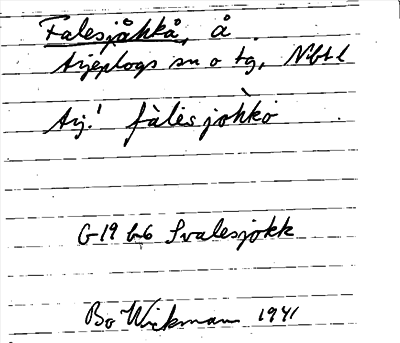 Falesjåhkå, å.
Arjeplogs sn o tg, Nbtl
Arj.! fàlēsjòhkò
G-19 b6 Svalesjokk
Bo Wickman 1941